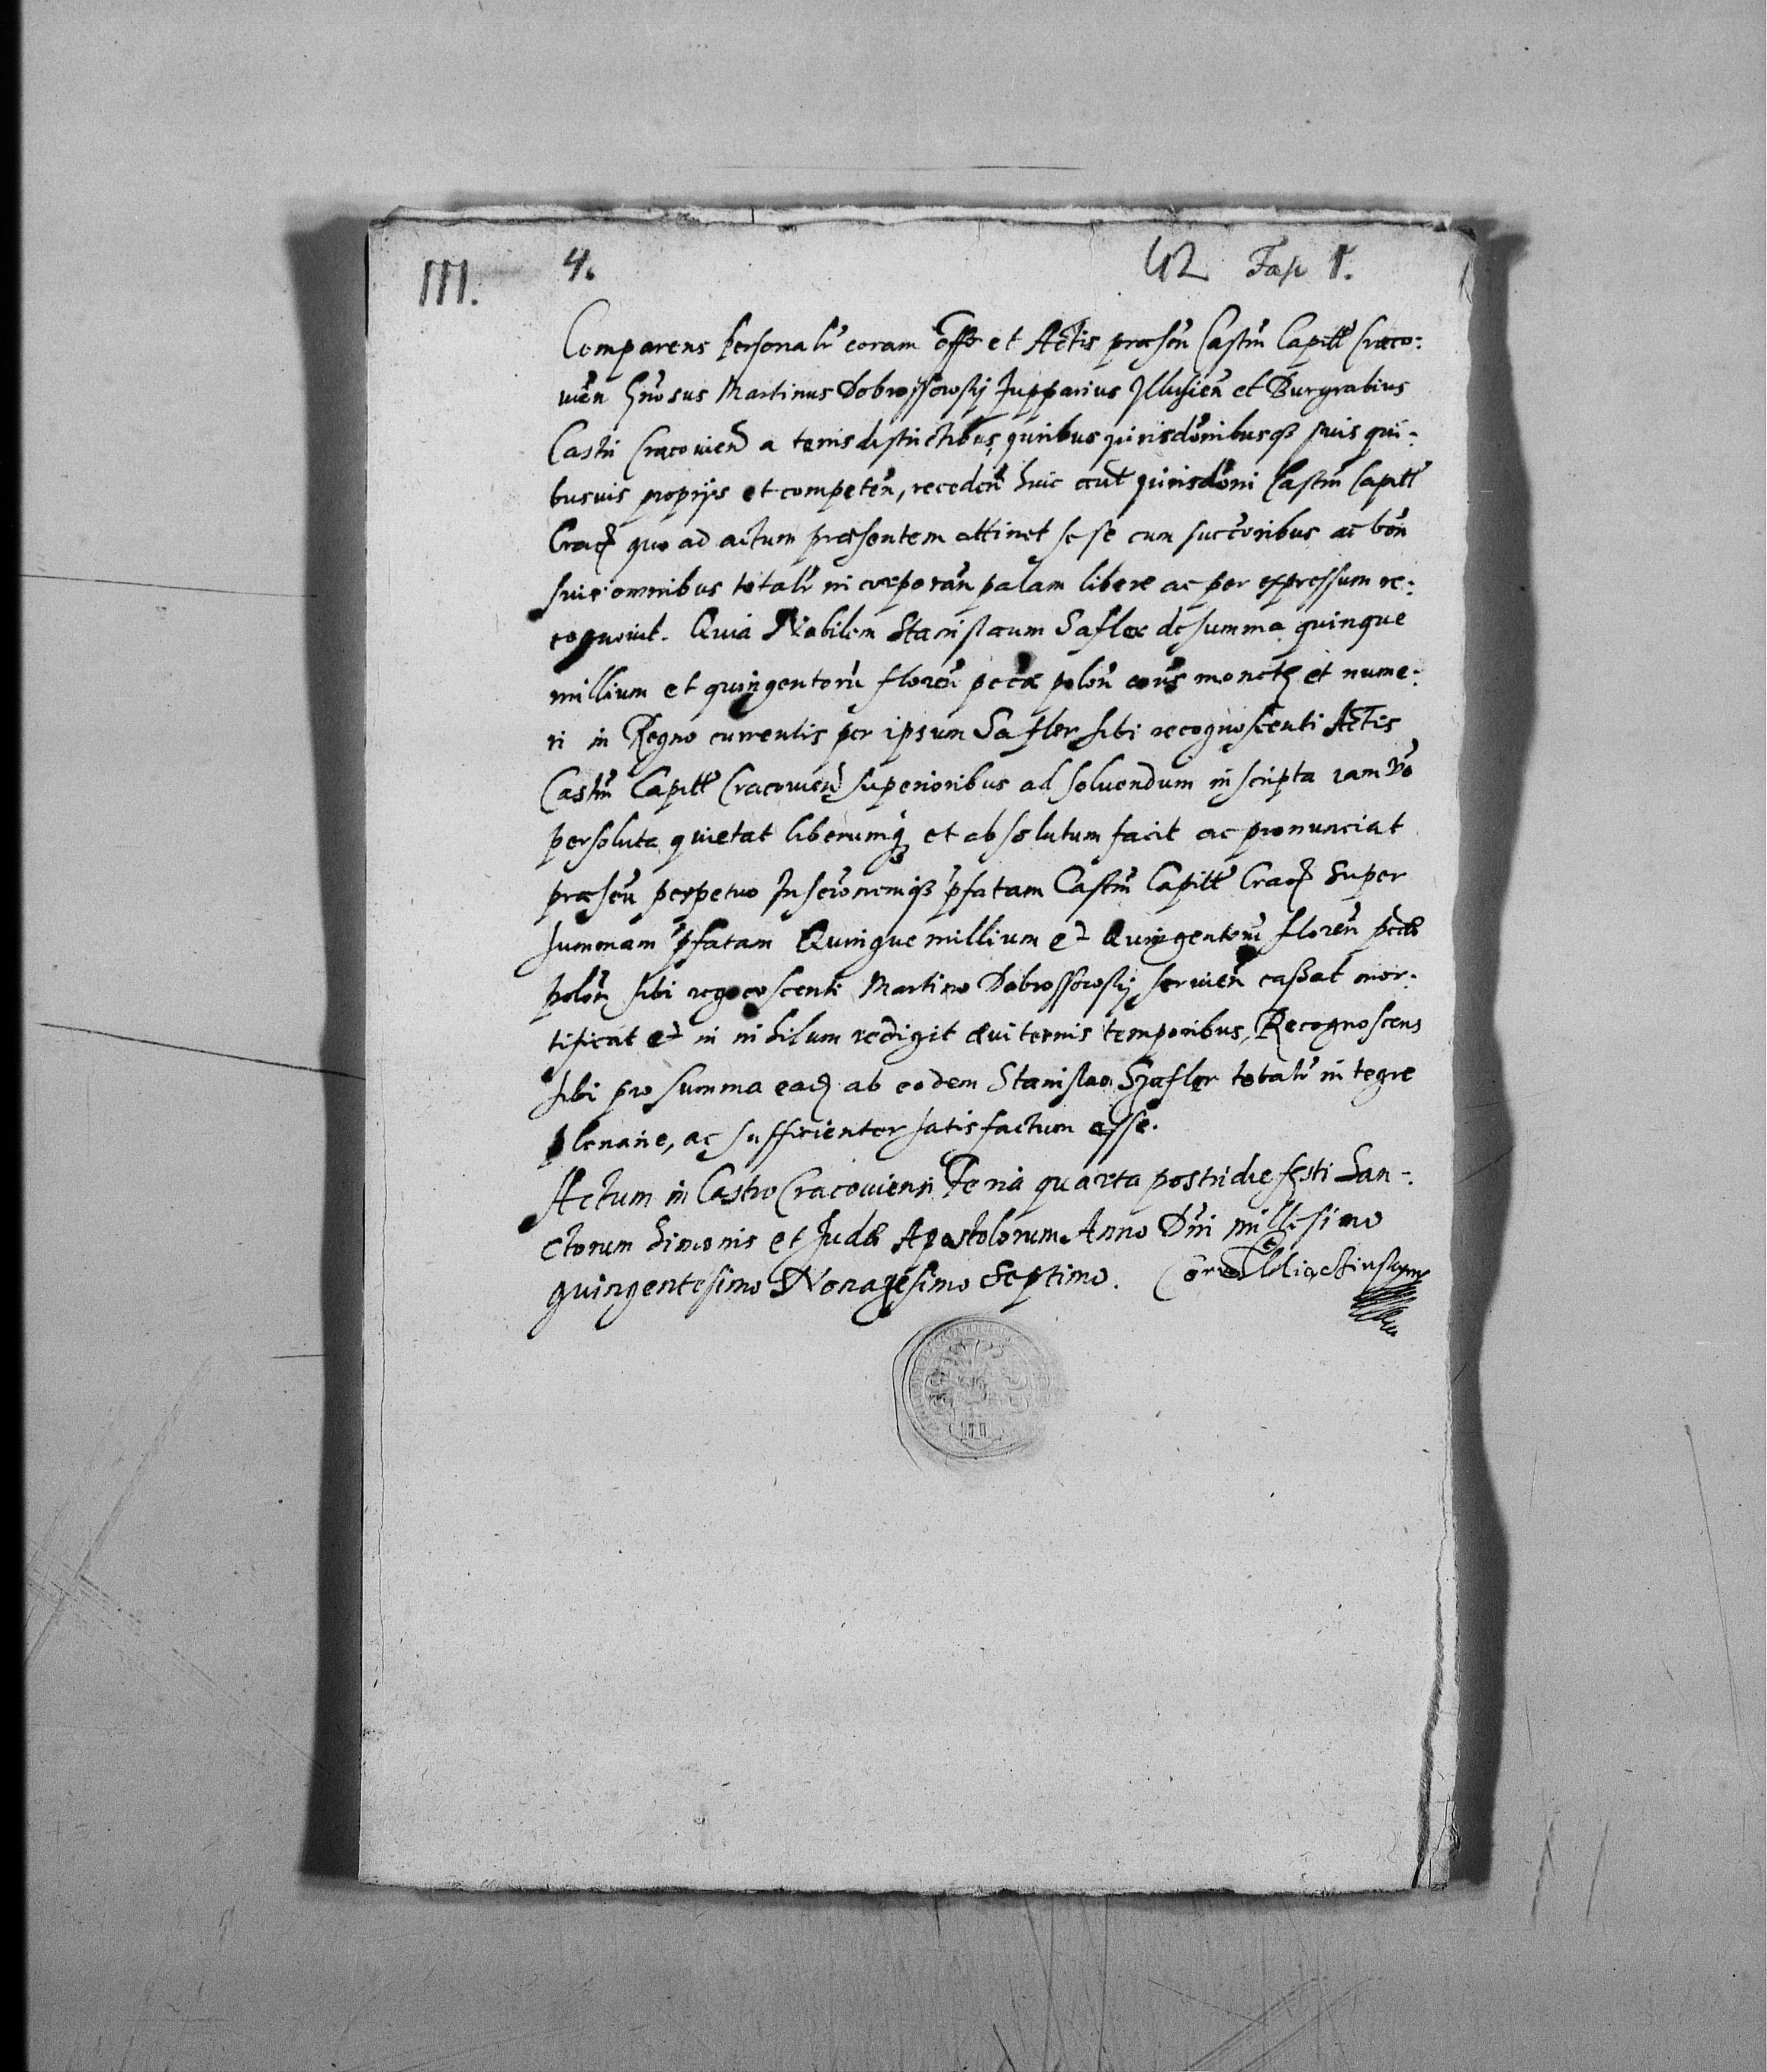 III. 4. 42 Fasc 1.
Comparens personalr coram offo et Actis præsen Castrn Capitl Craco:
uien Gnosus Martinus Dobrossowskj Zupparius Ilkusien et Burgrabius
Castri Cracouien a terris districtibus, iuribus iurisdonibusq suis qui:
busuis proprijs et competen, receden huic iurisdoni Castrn Capitl
Crac quo ad actum præsentem attinet se se cum succoribus ac bon
suis omnibus totalr incorporan palam libere ac per expressum re:
cognouit. Quia Nobilem Stanislaum Safler de summa quinque
millium et quingentoru floren pecæ polon monetæ et nume:
ri in Regno currentis per ipsum Safler sibi recognoscenti Actis
Castrn Capitl Cracouien superioribus ad soluendum inscripta iam vo
persoluta quietat liberumq et absolutum facit ac pronunciat
præsen perpetuo Inscronemq pfatam Castrn Capitl Crac super
summam pfatam Quinque millium et Quingentoru floren pecæ
polon sibi regocoscenti Martino Dobrossowskj seruien cassat mor:
tificat et in nihilum redigit æuiternis temporibus, Recognoscens
sibi pro summa ead ab eodem Stanislao Szafler totalr integre
plenarie, ac sufficienter satisfactum esse.
Actum in Castro Cracouiensi Feria quarta postridie festi San-:
ctorum Simonis et Judæ Apostolorum. Anno Dni millesimo
quingentesimo Nonagesimo Septimo.